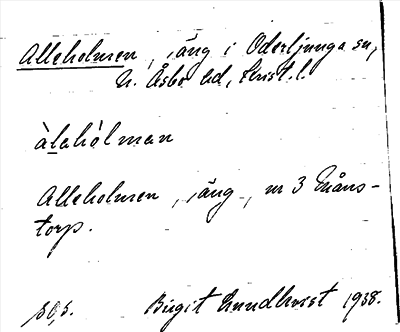 Alleholmen, äng i Oderljunga sn,
N. Åsbo hd, Krist. l.
àlahòlman
Alleholmen, äng, nr 3 Måns-
torp.
Birgit Lundkvist 1938.